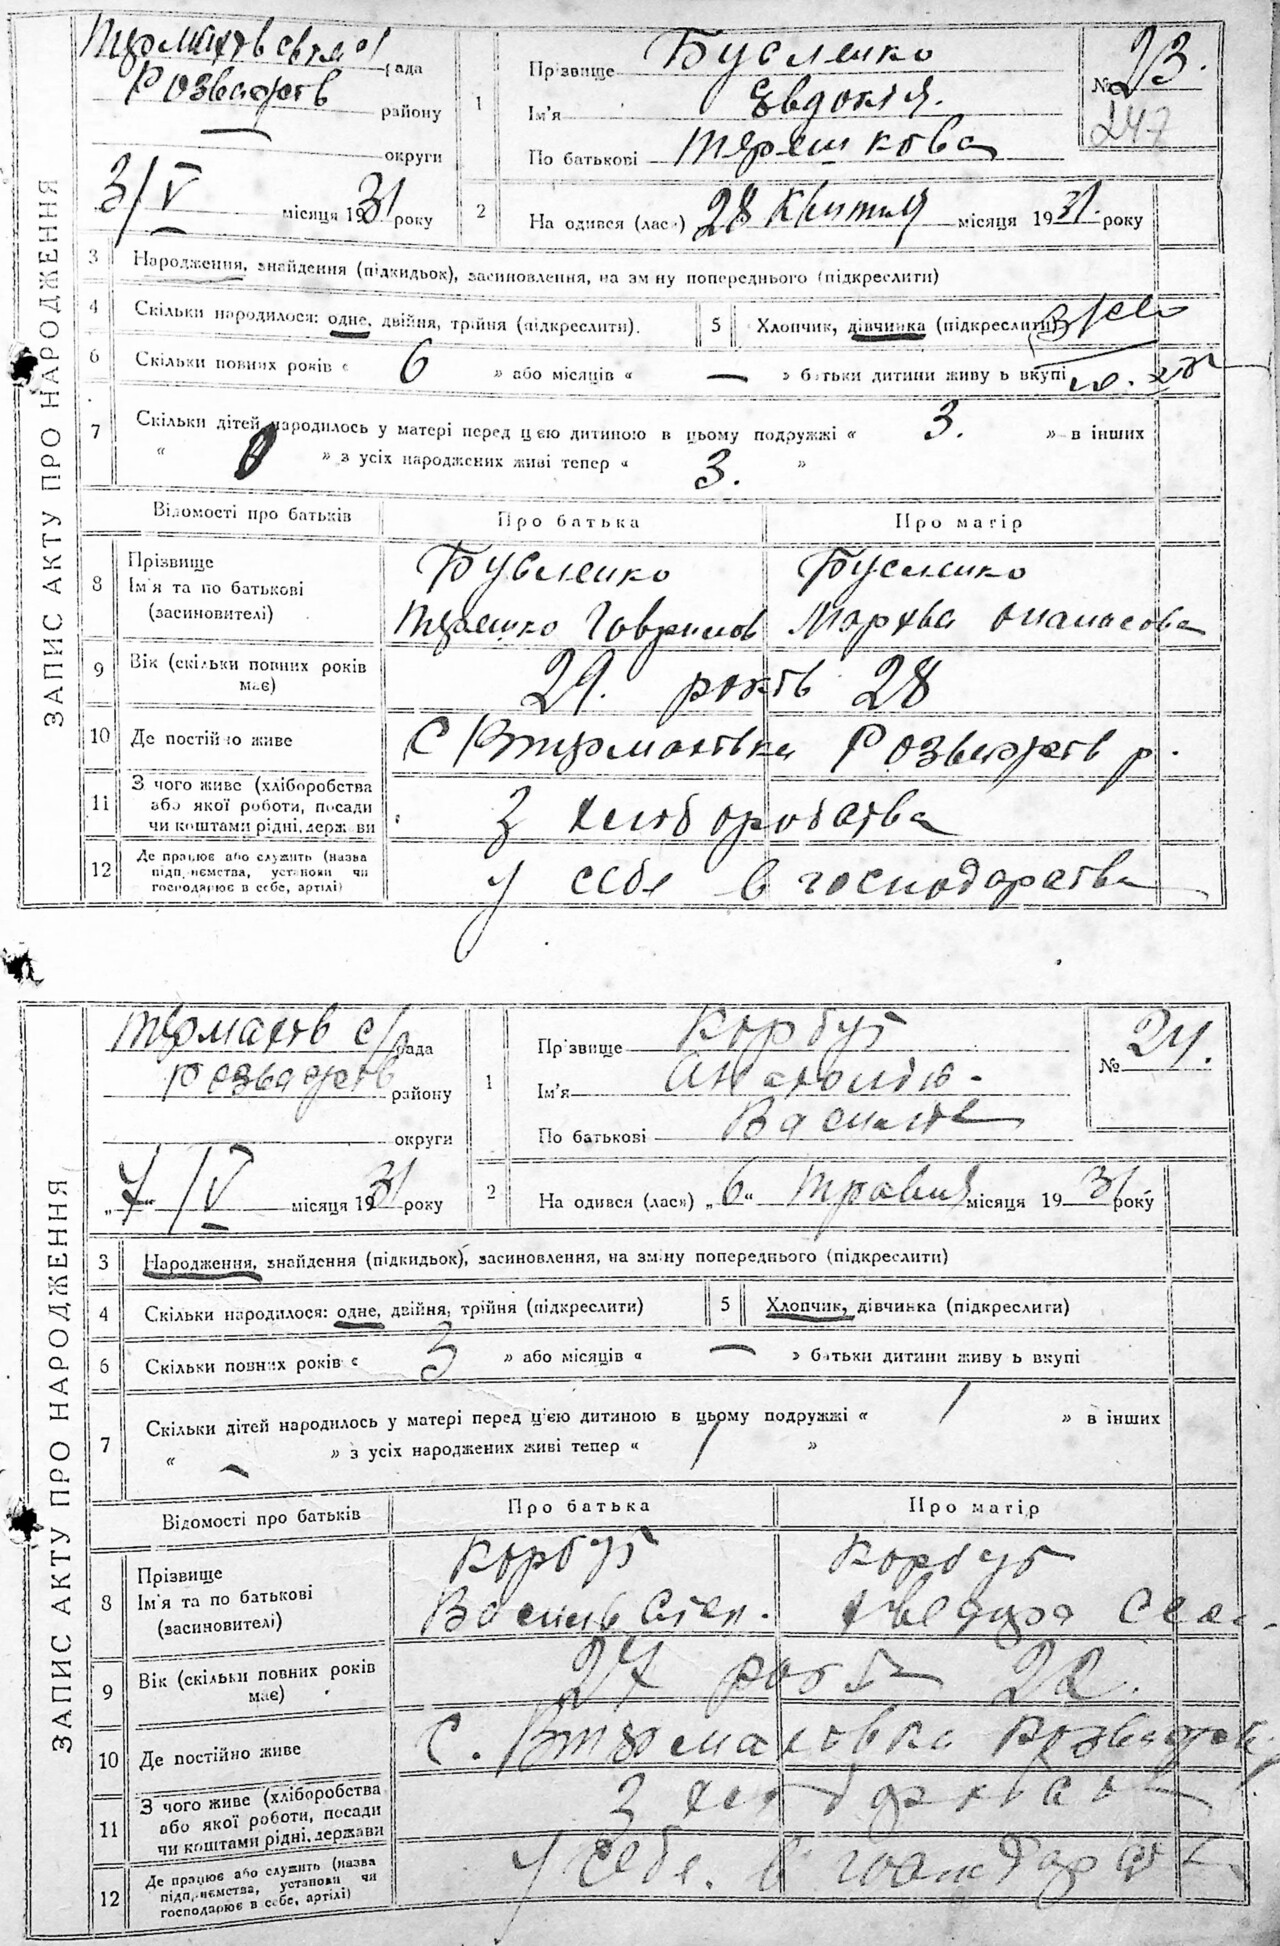 ЗАПИС АКТУ ПРО НАРОДЖЕННЯ
рада
Розважів району
округи
3/V місяця 1931 року
1
Прізвище Бусленко
Ім'я Євдокія.
По батькові Терешкова
№ 23.
247
2
На одився (лась) 28 Квітня місяця 1931. року
3 Народження, знайдення (підкидьок), засиновлення, на зміну попереднього (підкреслити)
4 Скільки народилося: одне, двійня, трійня (підкреслити).
5 Хлопчик, дівчинка (підкреслити)
6 Скільки повних років « 6 » або місяців « — » батьки дитини живуть вкупі
7 Скільки дітей народилось у матері перед цією дитиною в цьому подружжі « 3. » в інших
« 0 » з усіх народжених живі тепер « 3. »
Відомості про батьків Про батька Про матір
8 Прізвище Ім'я та по батькові (засиновителі)
Бусленко Бусленко
Терешко Гаврилов Мархва Опанасова
9 Вік (скільки повних років має) 29. років 28
10 Де постійно живе С Розважів р.
11 З чого живе (хліборобства або якої роботи, посади чи коштами рідні, держави З хліборобства
12 Де працює або служить (назва підприємства, установи чи господарює в себе, артілі) у себе в господарства
ЗАПИС АКТУ ПРО НАРОДЖЕННЯ
с/рада
Розважів району
округи
„7" /V місяця 1931 року
1
Прізвище Корбут
Ім'я Анатолій.
По батькові
№ 24.
2
На одився (лась) „6" травня місяця 1931 року
3 Народження, знайдення (підкидьок), засиновлення, на зміну попереднього (підкреслити)
4 Скільки народилося: одне, двійня, трійня (підкреслити)
5 Хлопчик, дівчинка (підкреслити)
6 Скільки повних років « 3 » або місяців « — » батьки дитини живуть вкупі
7 Скільки дітей народилось у матері перед цією дитиною в цьому подружжі « 1 » в інших
« — » з усіх народжених живі тепер « 1 »
Відомості про батьків Про батька Про матір
8 Прізвище Ім'я та по батькові (засиновителі)
Корбут Корбут
Василь Степ.
9 Вік (скільки повних років має) 27 22.
10 Де постійно живе С.
11 З чого живе (хліборобства або якої роботи, посади чи коштами рідні, держави З
12 Де працює або служить (назва підприємства, установи чи господарює в себе, артілі) у себе. в